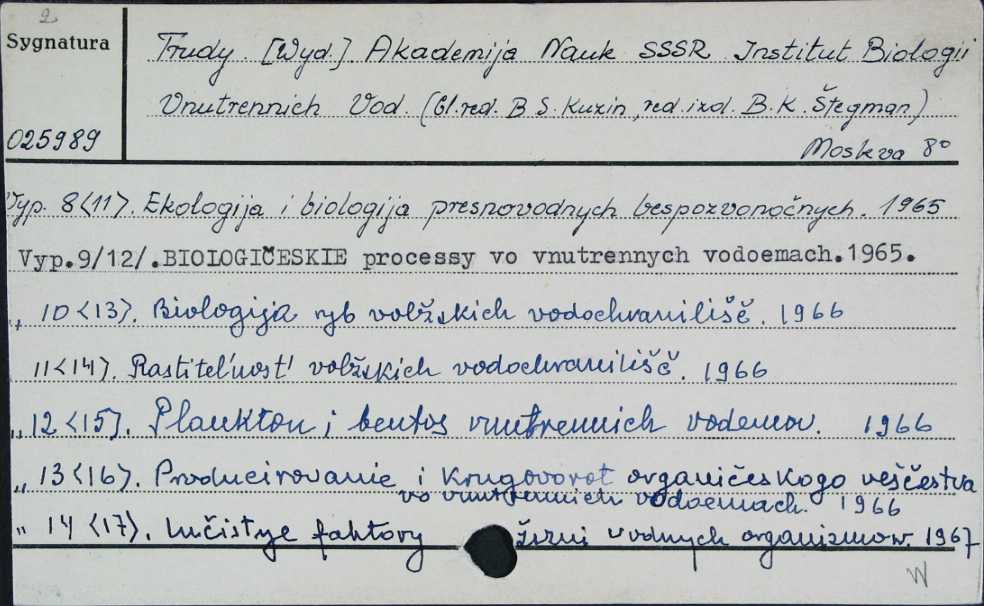 2
Sygnatura
Trudy. [Wyd.] Akademija Nauk SSSR Institut Biologii
Vnutrennich Vod. (Gl.red. B S. Kuzin, red. izd. B. K. Štegman)
025989
Moskva 8°
Vyp. 8<11>. Ekologija i biologija presnovodnych bespozvonočnych. 1965
Vyp.9/12/.BIOLOGIČESKIE processy vo vnutrennych vodoemach.1965.
„ 10<13>. Biologija ryb volžskich vodochranilišč. 1966
11<14>. Rastitel'nost' volžskich vodochranilišč. 1966
„ 12<15>. Plankton i bentos vnutrennich vodemov. 1966
„ 13<16>. Producirovanie i Krugovorot organičeskogo veščestva
vo vnutrennich vodoemach. 1966
„ 14<17>. Lučistye faktory žizni vodnych organizmow. 1967
W